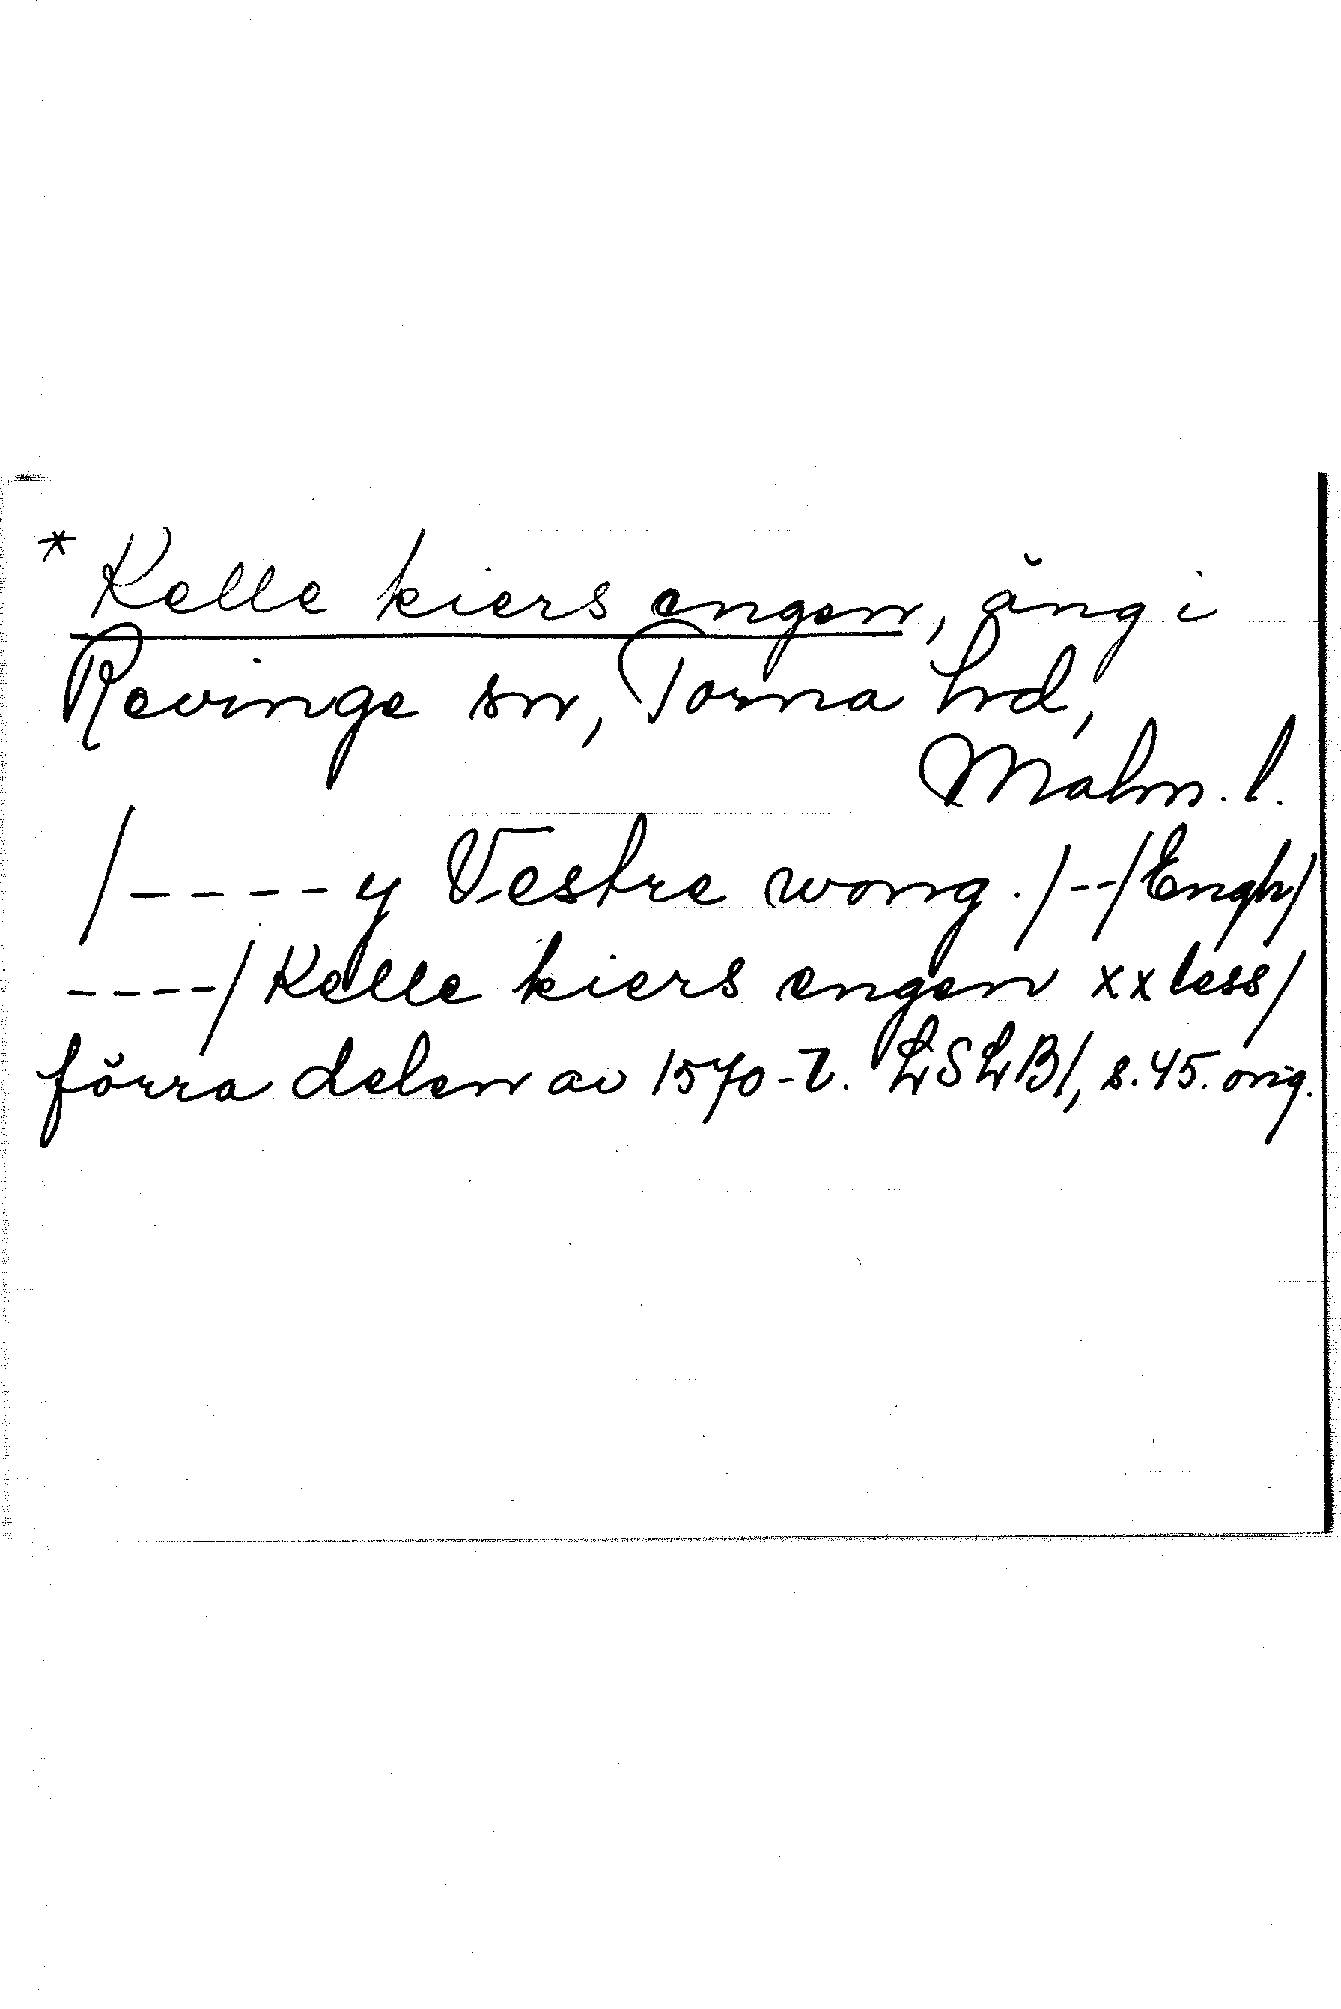 * Kelle kiers engen, äng i
Revinge sn, Torna hrd,
Malm. l.
/---- y Vestre wong. /--/ Engh/
----/ Kelle kiers engen xx less/
förra delen av 1570-t. LSLB1, s. 45. orig.